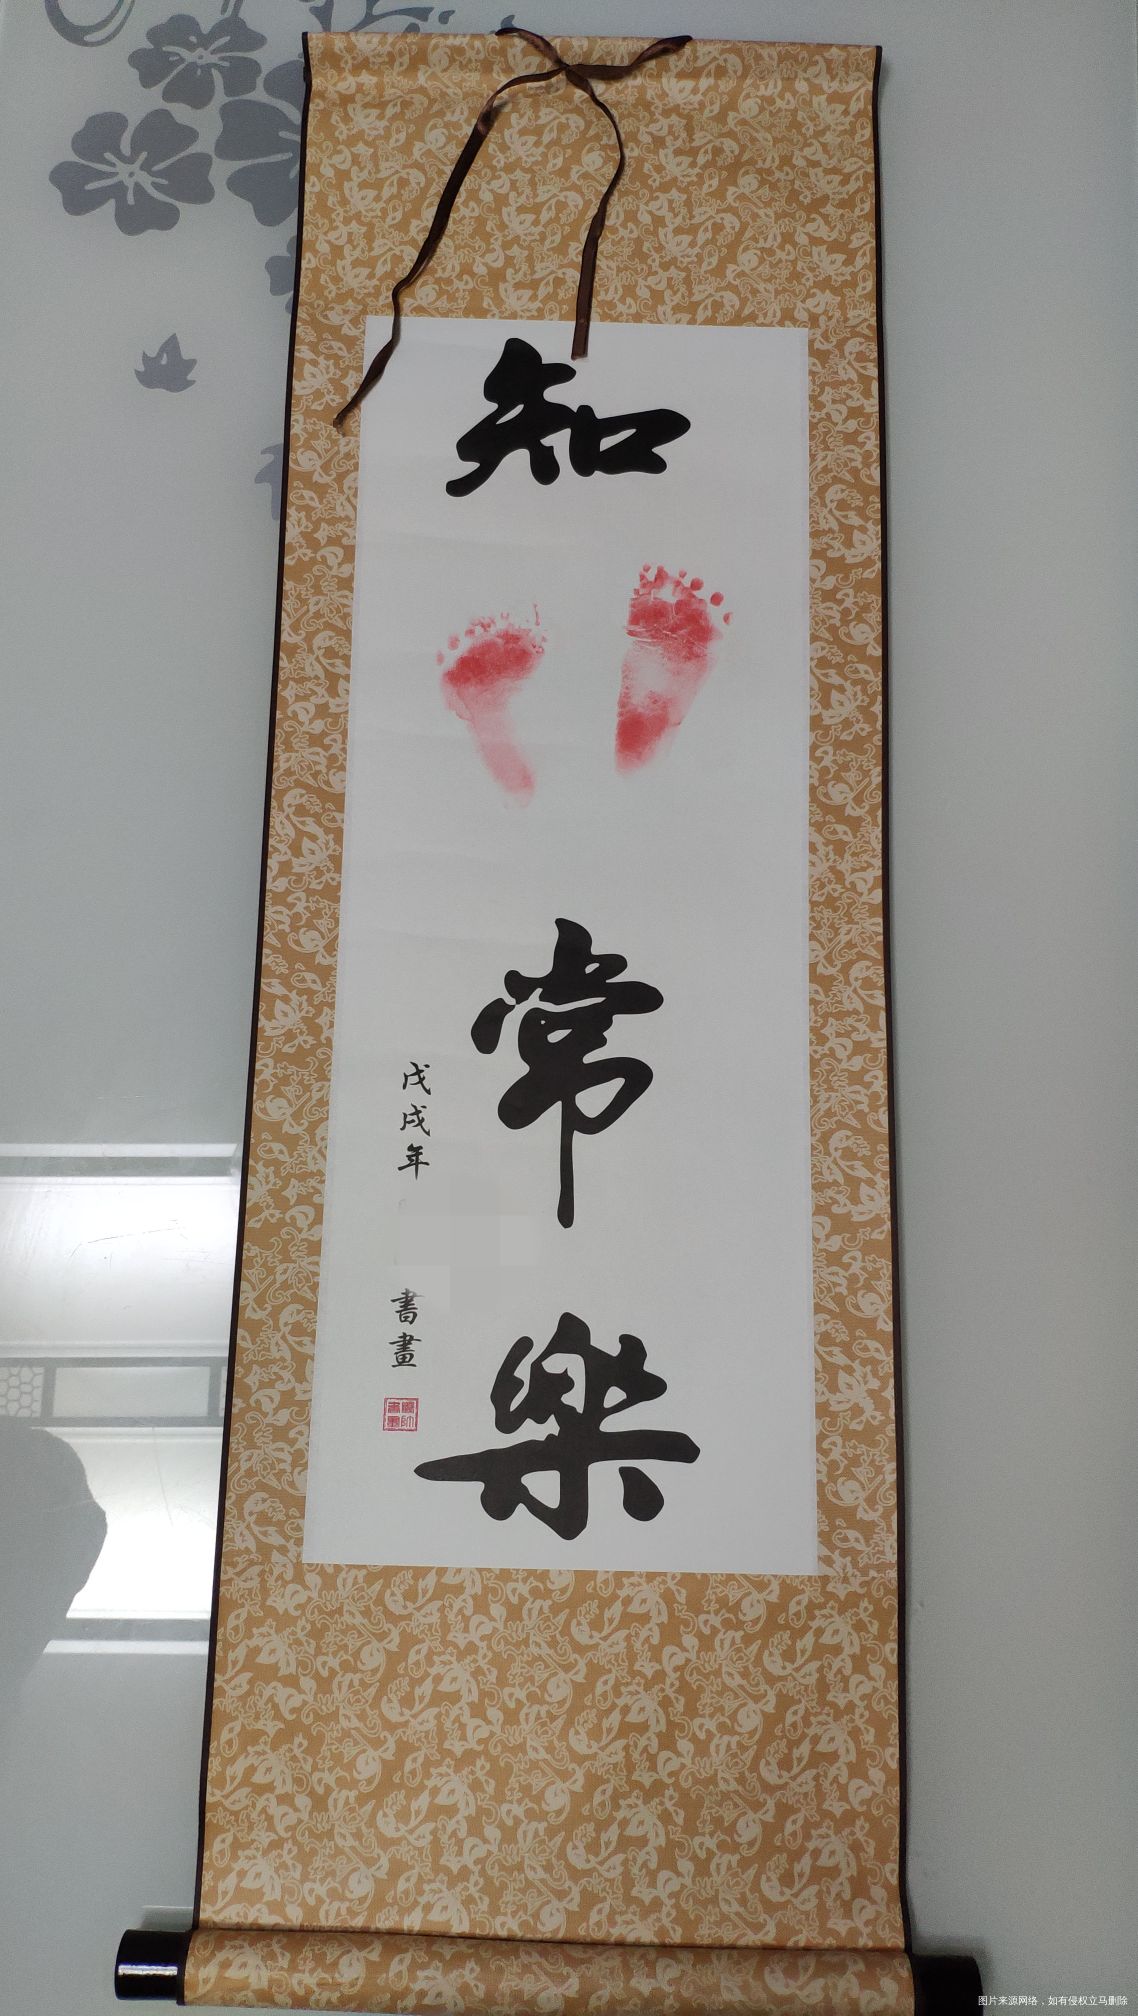 知
常
樂
戊戌年
書畫
图片来源网络，如有侵权立马删除